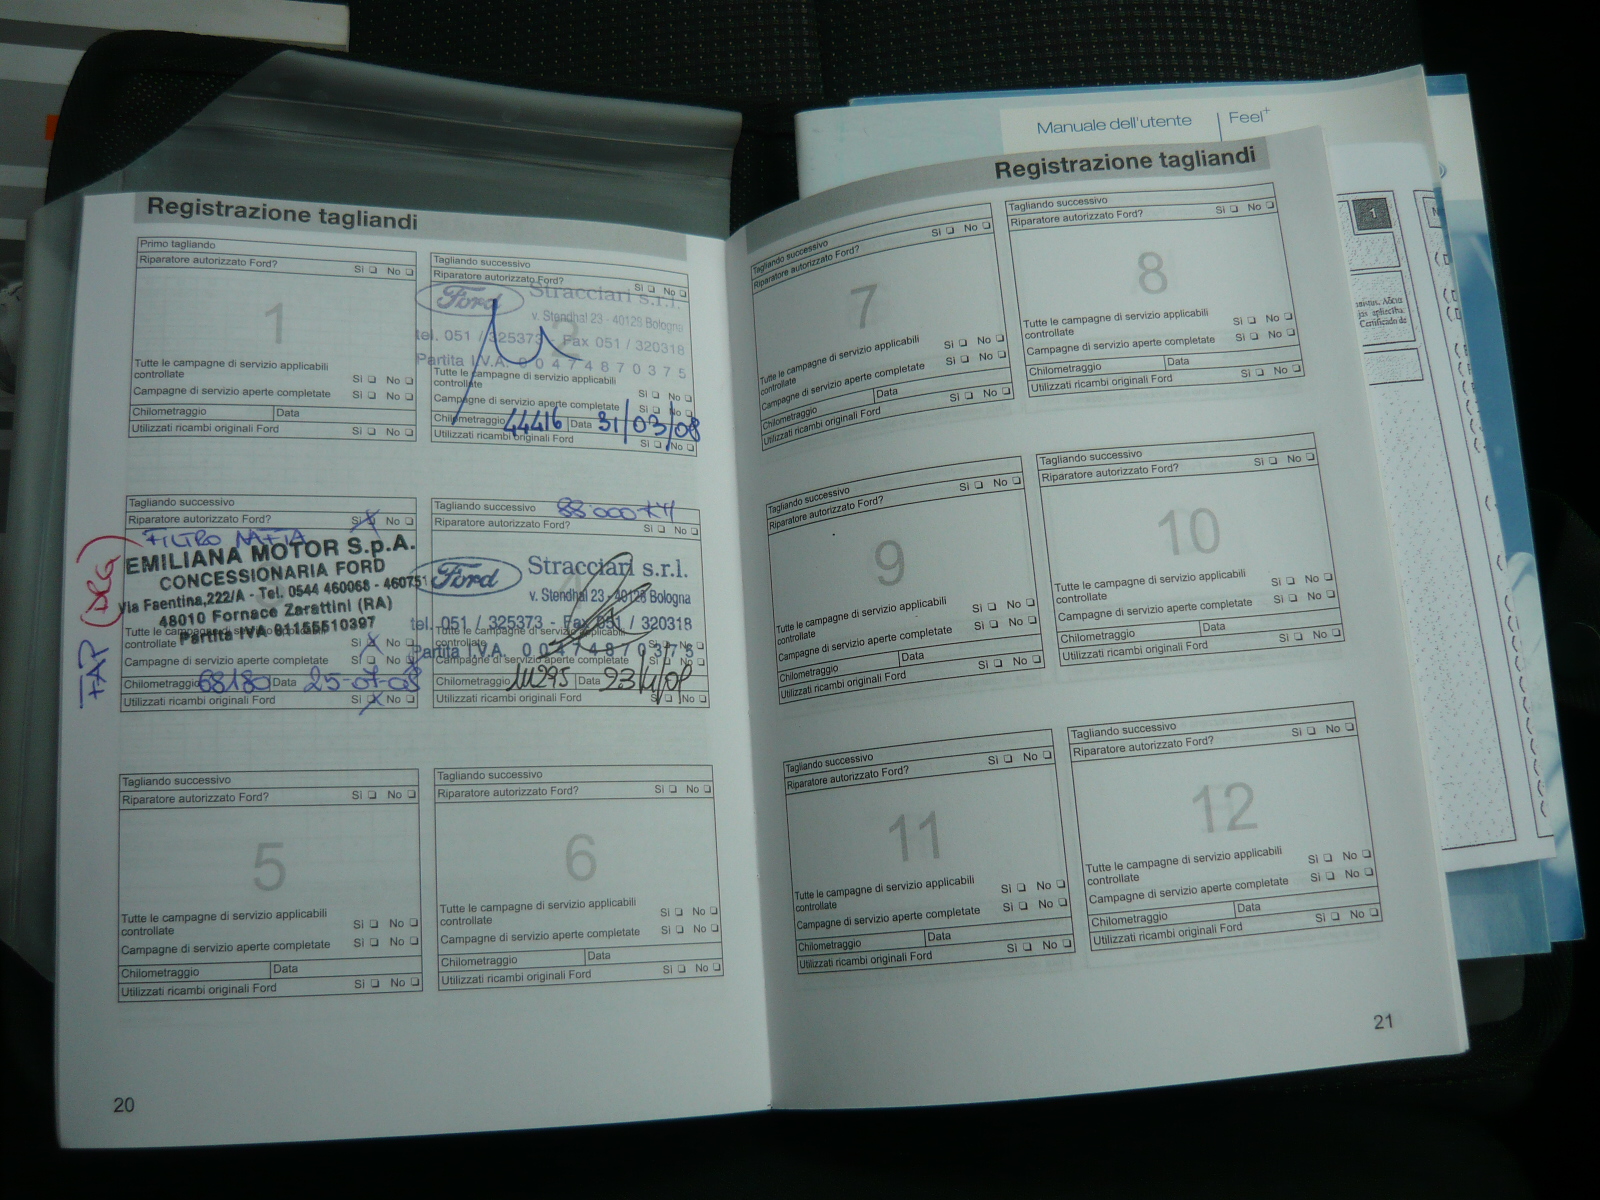 Manuale dell'utente | Feel+
Registrazione tagliandi
Primo tagliando
Riparatore autorizzato Ford? Sì No
1
Tutte le campagne di servizio applicabili
controllate Sì No
Campagne di servizio aperte completate Sì No
Chilometraggio Data
Utilizzati ricambi originali Ford Sì No
Tagliando successivo
Riparatore autorizzato Ford? Sì No
Ford Stracciari s.r.l.
v. Stendhal 23 - 40128 Bologna
tel. 051 / 325373 - Fax 051 / 320318
Partita I.V.A. 0 0 4 7 4 8 7 0 3 7 5
2
Tutte le campagne di servizio applicabili
controllate Sì No
Campagne di servizio aperte completate Sì No
Chilometraggio 44416 Data 31/03/08
Utilizzati ricambi originali Ford Sì No
Tagliando successivo
Riparatore autorizzato Ford? Sì No
FILTRO NAFTA
EMILIANA MOTOR S.p.A.
CONCESSIONARIA FORD
Via Faentina,222/A - Tel. 0544 460068 - 460751
48010 Fornace Zarattini (RA)
Partita IVA 01155510397
Tutte le campagne di servizio applicabili
controllate Sì No
Campagne di servizio aperte completate Sì No
Chilometraggio 68180 Data 25-07-08
Utilizzati ricambi originali Ford Sì No
FAP
Tagliando successivo 88.000 KM
Riparatore autorizzato Ford? Sì No
Ford Stracciari s.r.l.
v. Stendhal 23 - 40128 Bologna
tel. 051 / 325373 - Fax 051 / 320318
Partita I.V.A. 0 0 4 7 4 8 7 0 3 7 5
Tutte le campagne di servizio applicabili
controllate Sì No
Campagne di servizio aperte completate Sì No
Chilometraggio Data
Utilizzati ricambi originali Ford Sì No
Tagliando successivo
Riparatore autorizzato Ford? Sì No
5
Tutte le campagne di servizio applicabili
controllate Sì No
Campagne di servizio aperte completate Sì No
Chilometraggio Data
Utilizzati ricambi originali Ford Sì No
Tagliando successivo
Riparatore autorizzato Ford? Sì No
6
Tutte le campagne di servizio applicabili
controllate Sì No
Campagne di servizio aperte completate Sì No
Chilometraggio Data
Utilizzati ricambi originali Ford Sì No
20
Registrazione tagliandi
Tagliando successivo
Riparatore autorizzato Ford? Sì No
7
Tutte le campagne di servizio applicabili
controllate Sì No
Campagne di servizio aperte completate Sì No
Chilometraggio Data
Utilizzati ricambi originali Ford Sì No
Tagliando successivo
Riparatore autorizzato Ford? Sì No
8
Tutte le campagne di servizio applicabili
controllate Sì No
Campagne di servizio aperte completate Sì No
Chilometraggio Data
Utilizzati ricambi originali Ford Sì No
Tagliando successivo
Riparatore autorizzato Ford? Sì No
9
Tutte le campagne di servizio applicabili
controllate Sì No
Campagne di servizio aperte completate Sì No
Chilometraggio Data
Utilizzati ricambi originali Ford Sì No
Tagliando successivo
Riparatore autorizzato Ford? Sì No
10
Tutte le campagne di servizio applicabili
controllate Sì No
Campagne di servizio aperte completate Sì No
Chilometraggio Data
Utilizzati ricambi originali Ford Sì No
Tagliando successivo
Riparatore autorizzato Ford? Sì No
11
Tutte le campagne di servizio applicabili
controllate Sì No
Campagne di servizio aperte completate Sì No
Chilometraggio Data
Utilizzati ricambi originali Ford Sì No
Tagliando successivo
Riparatore autorizzato Ford? Sì No
12
Tutte le campagne di servizio applicabili
controllate Sì No
Campagne di servizio aperte completate Sì No
Chilometraggio Data
Utilizzati ricambi originali Ford Sì No
21
1
Certificado de